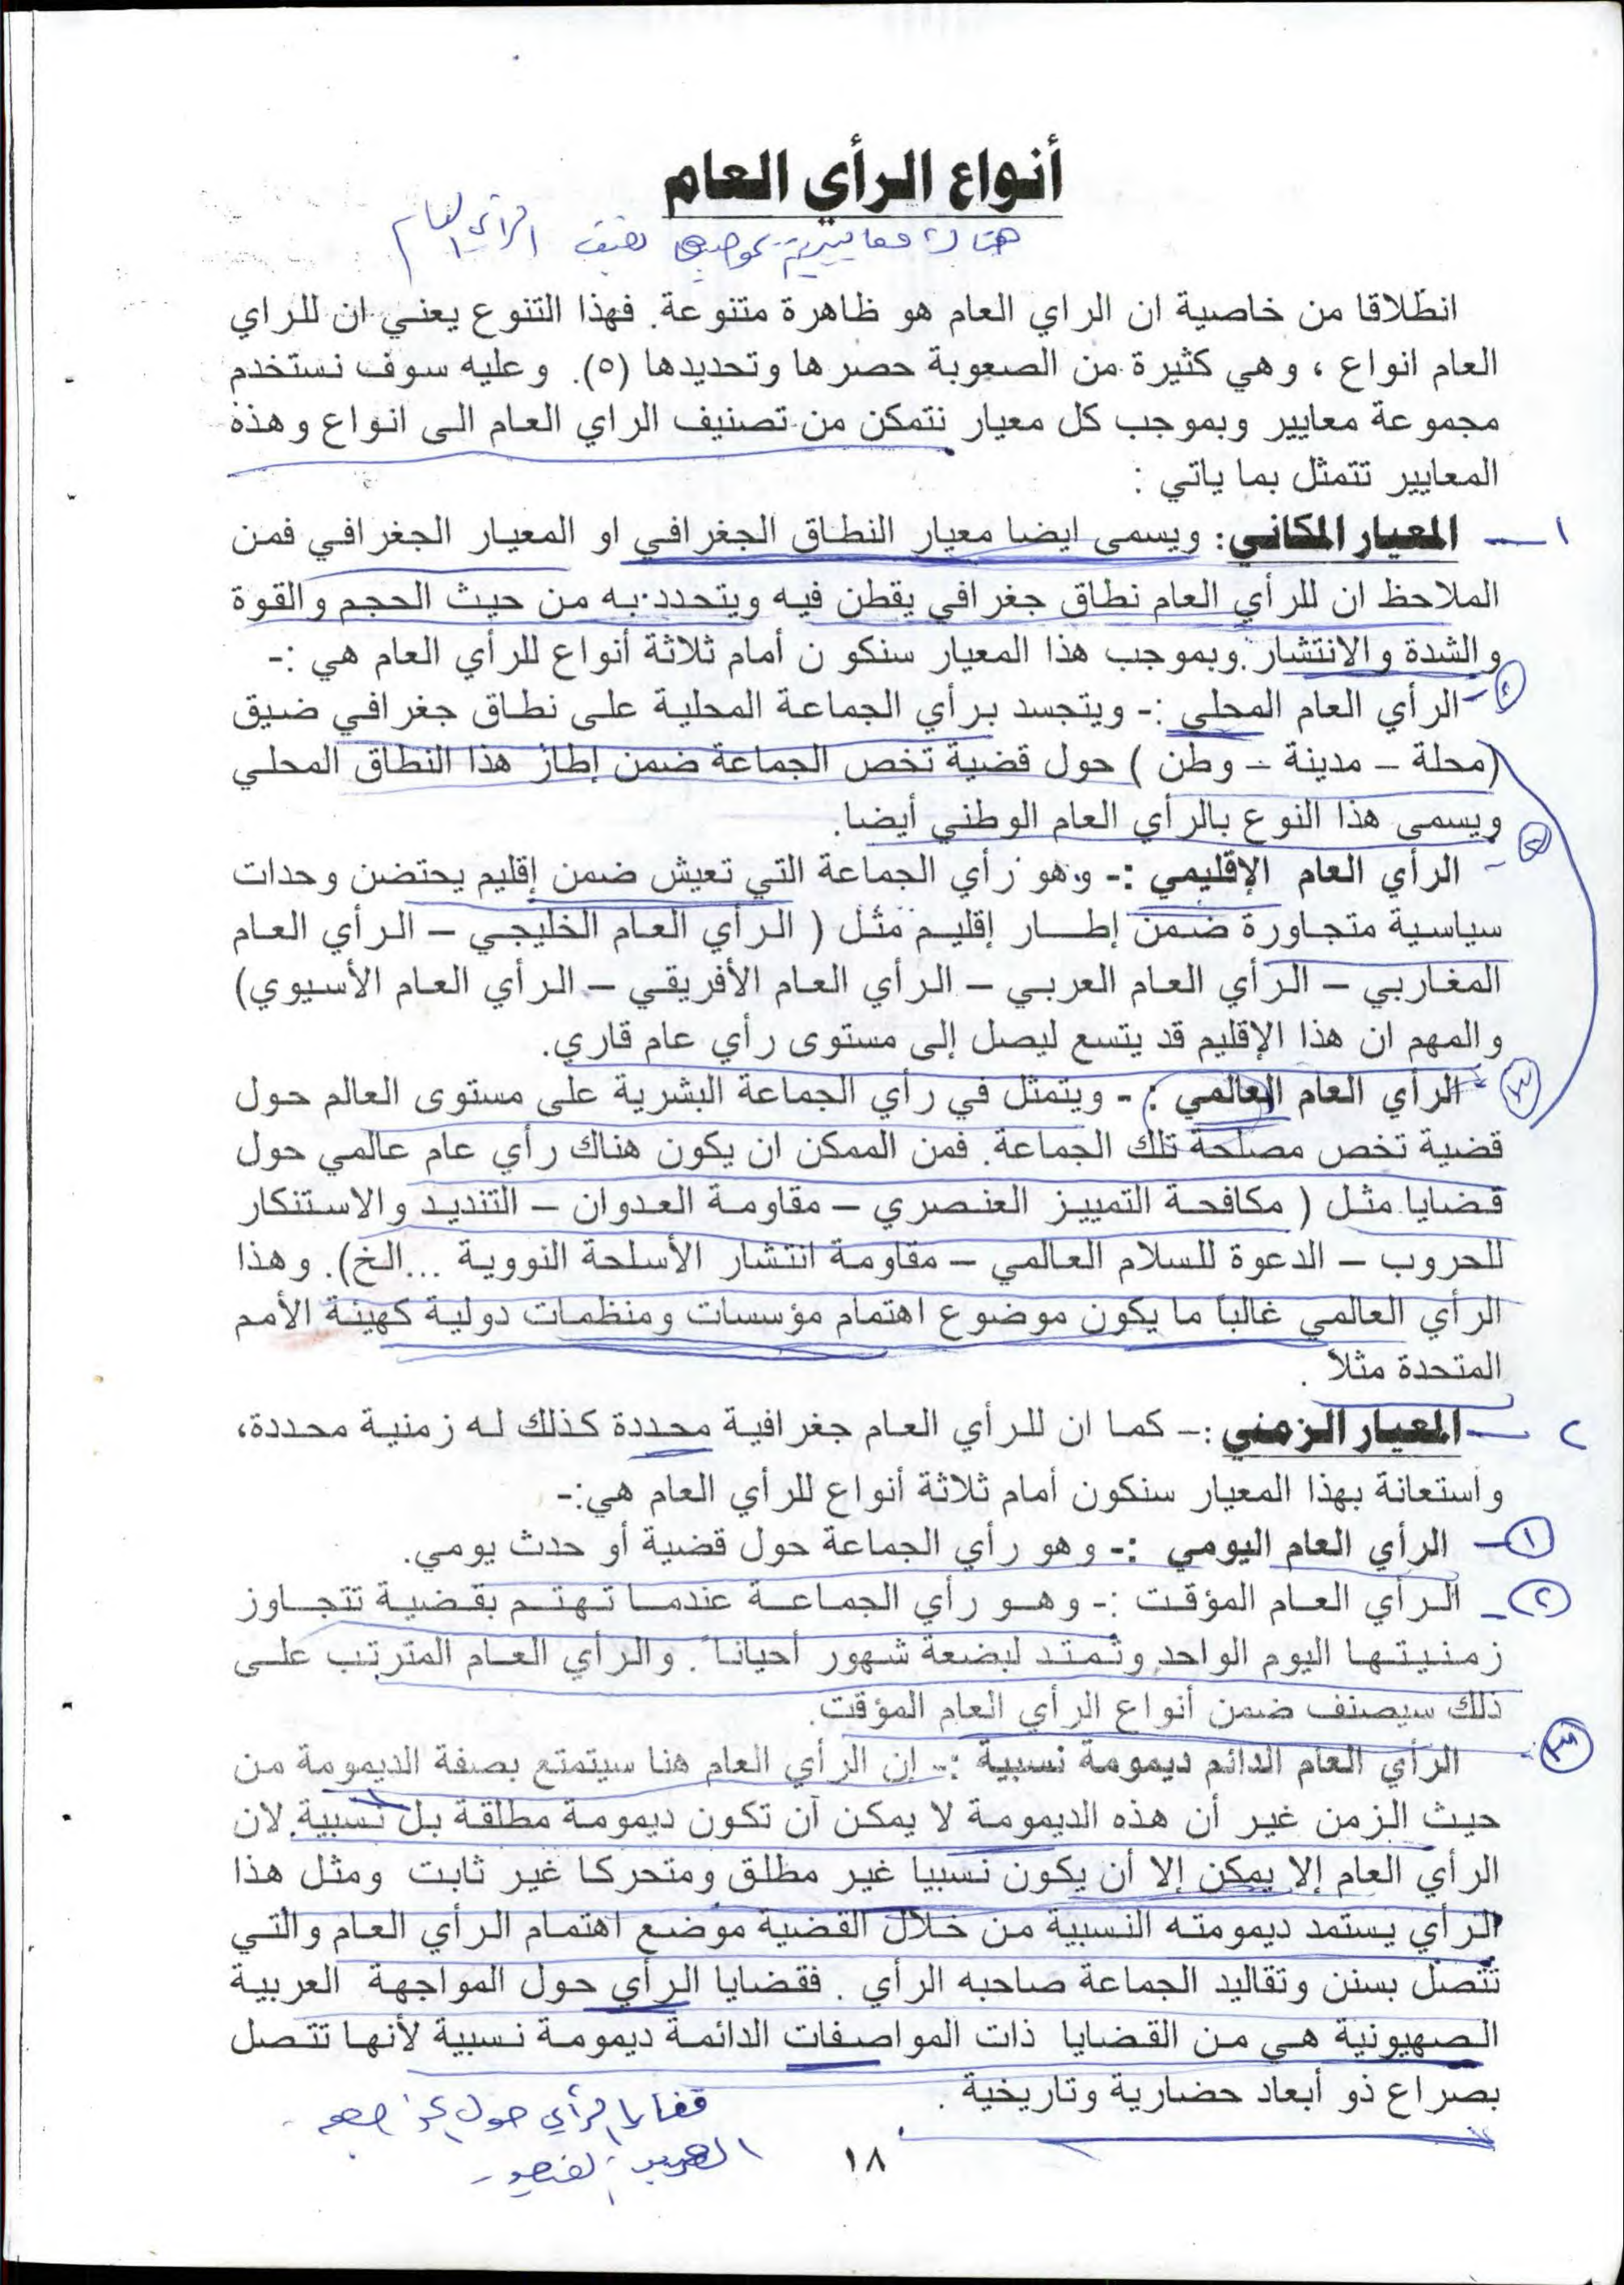 أنواع الرأي العام
هناك معايير بموجبها تصنف الرأي العام
انطلاقا من خاصية ان الراي العام هو ظاهرة متنوعة. فهذا التنوع يعني ان للراي
العام انواع ، وهي كثيرة من الصعوبة حصرها وتحديدها (٥). وعليه سوف نستخدم
مجموعة معايير وبموجب كل معيار نتمكن من تصنيف الراي العام الى انواع وهذه
المعايير تتمثل بما ياتي :
١ — المعيار المكاني: ويسمى ايضا معيار النطاق الجغرافي او المعيار الجغرافي فمن
الملاحظ ان للرأي العام نطاق جغرافي يقطن فيه ويتحدد به من حيث الحجم والقوة
والشدة والانتشار. وبموجب هذا المعيار سنكو ن أمام ثلاثة أنواع للرأي العام هي :-
- الرأي العام المحلي :- ويتجسد برأي الجماعة المحلية على نطاق جغرافي ضيق
(محلة – مدينة – وطن ) حول قضية تخص الجماعة ضمن إطار هذا النطاق المحلي
ويسمى هذا النوع بالرأي العام الوطني أيضا.
٢ - الرأي العام الإقليمي :- وهو رأي الجماعة التي تعيش ضمن إقليم يحتضن وحدات
سياسية متجاورة ضمن إطار إقليم مثل ( الرأي العام الخليجي – الرأي العام
المغاربي – الرأي العام العربي – الرأي العام الأفريقي – الرأي العام الأسيوي)
والمهم ان هذا الإقليم قد يتسع ليصل إلى مستوى رأي عام قاري.
٣ - الرأي العام العالمي : - ويتمثل في رأي الجماعة البشرية على مستوى العالم حول
قضية تخص مصلحة تلك الجماعة. فمن الممكن ان يكون هناك رأي عام عالمي حول
قضايا مثل ( مكافحة التمييز العنصري – مقاومة العدوان – التنديد والاستنكار
للحروب – الدعوة للسلام العالمي – مقاومة انتشار الأسلحة النووية ...الخ). وهذا
الرأي العالمي غالباً ما يكون موضوع اهتمام مؤسسات ومنظمات دولية كهيئة الأمم
المتحدة مثلاً .
٢ — المعيار الزمني :- كما ان للرأي العام جغرافية محددة كذلك له زمنية محددة،
واستعانة بهذا المعيار سنكون أمام ثلاثة أنواع للرأي العام هي:-
١ - الرأي العام اليومي :- وهو رأي الجماعة حول قضية أو حدث يومي.
٢ - الرأي العام المؤقت :- وهو رأي الجماعة عندما تهتم بقضية تتجاوز
زمنيتها اليوم الواحد وتمتد لبضعة شهور أحياناً . والرأي العام المترتب على
ذلك سيصنف ضمن أنواع الرأي العام المؤقت.
٣ - الرأي العام الدائم ديمومة نسبية :- إن الرأي العام هنا سيتمتع بصفة الديمومة من
حيث الزمن غير أن هذه الديمومة لا يمكن أن تكون ديمومة مطلقة بل نسبية. لان
الرأي العام إلا يمكن إلا أن يكون نسبيا غير مطلق ومتحركا غير ثابت ومثل هذا
الرأي يستمد ديمومته النسبية من خلال القضية موضع اهتمام الرأي العام والتي
تتصل بسنن وتقاليد الجماعة صاحبه الرأي . فقضايا الرأي حول المواجهة العربية
الصهيونية هي من القضايا ذات المواصفات الدائمة ديمومة نسبية لأنها تتصل
بصراع ذو أبعاد حضارية وتاريخية .
قضايا الرأي حول
١٨